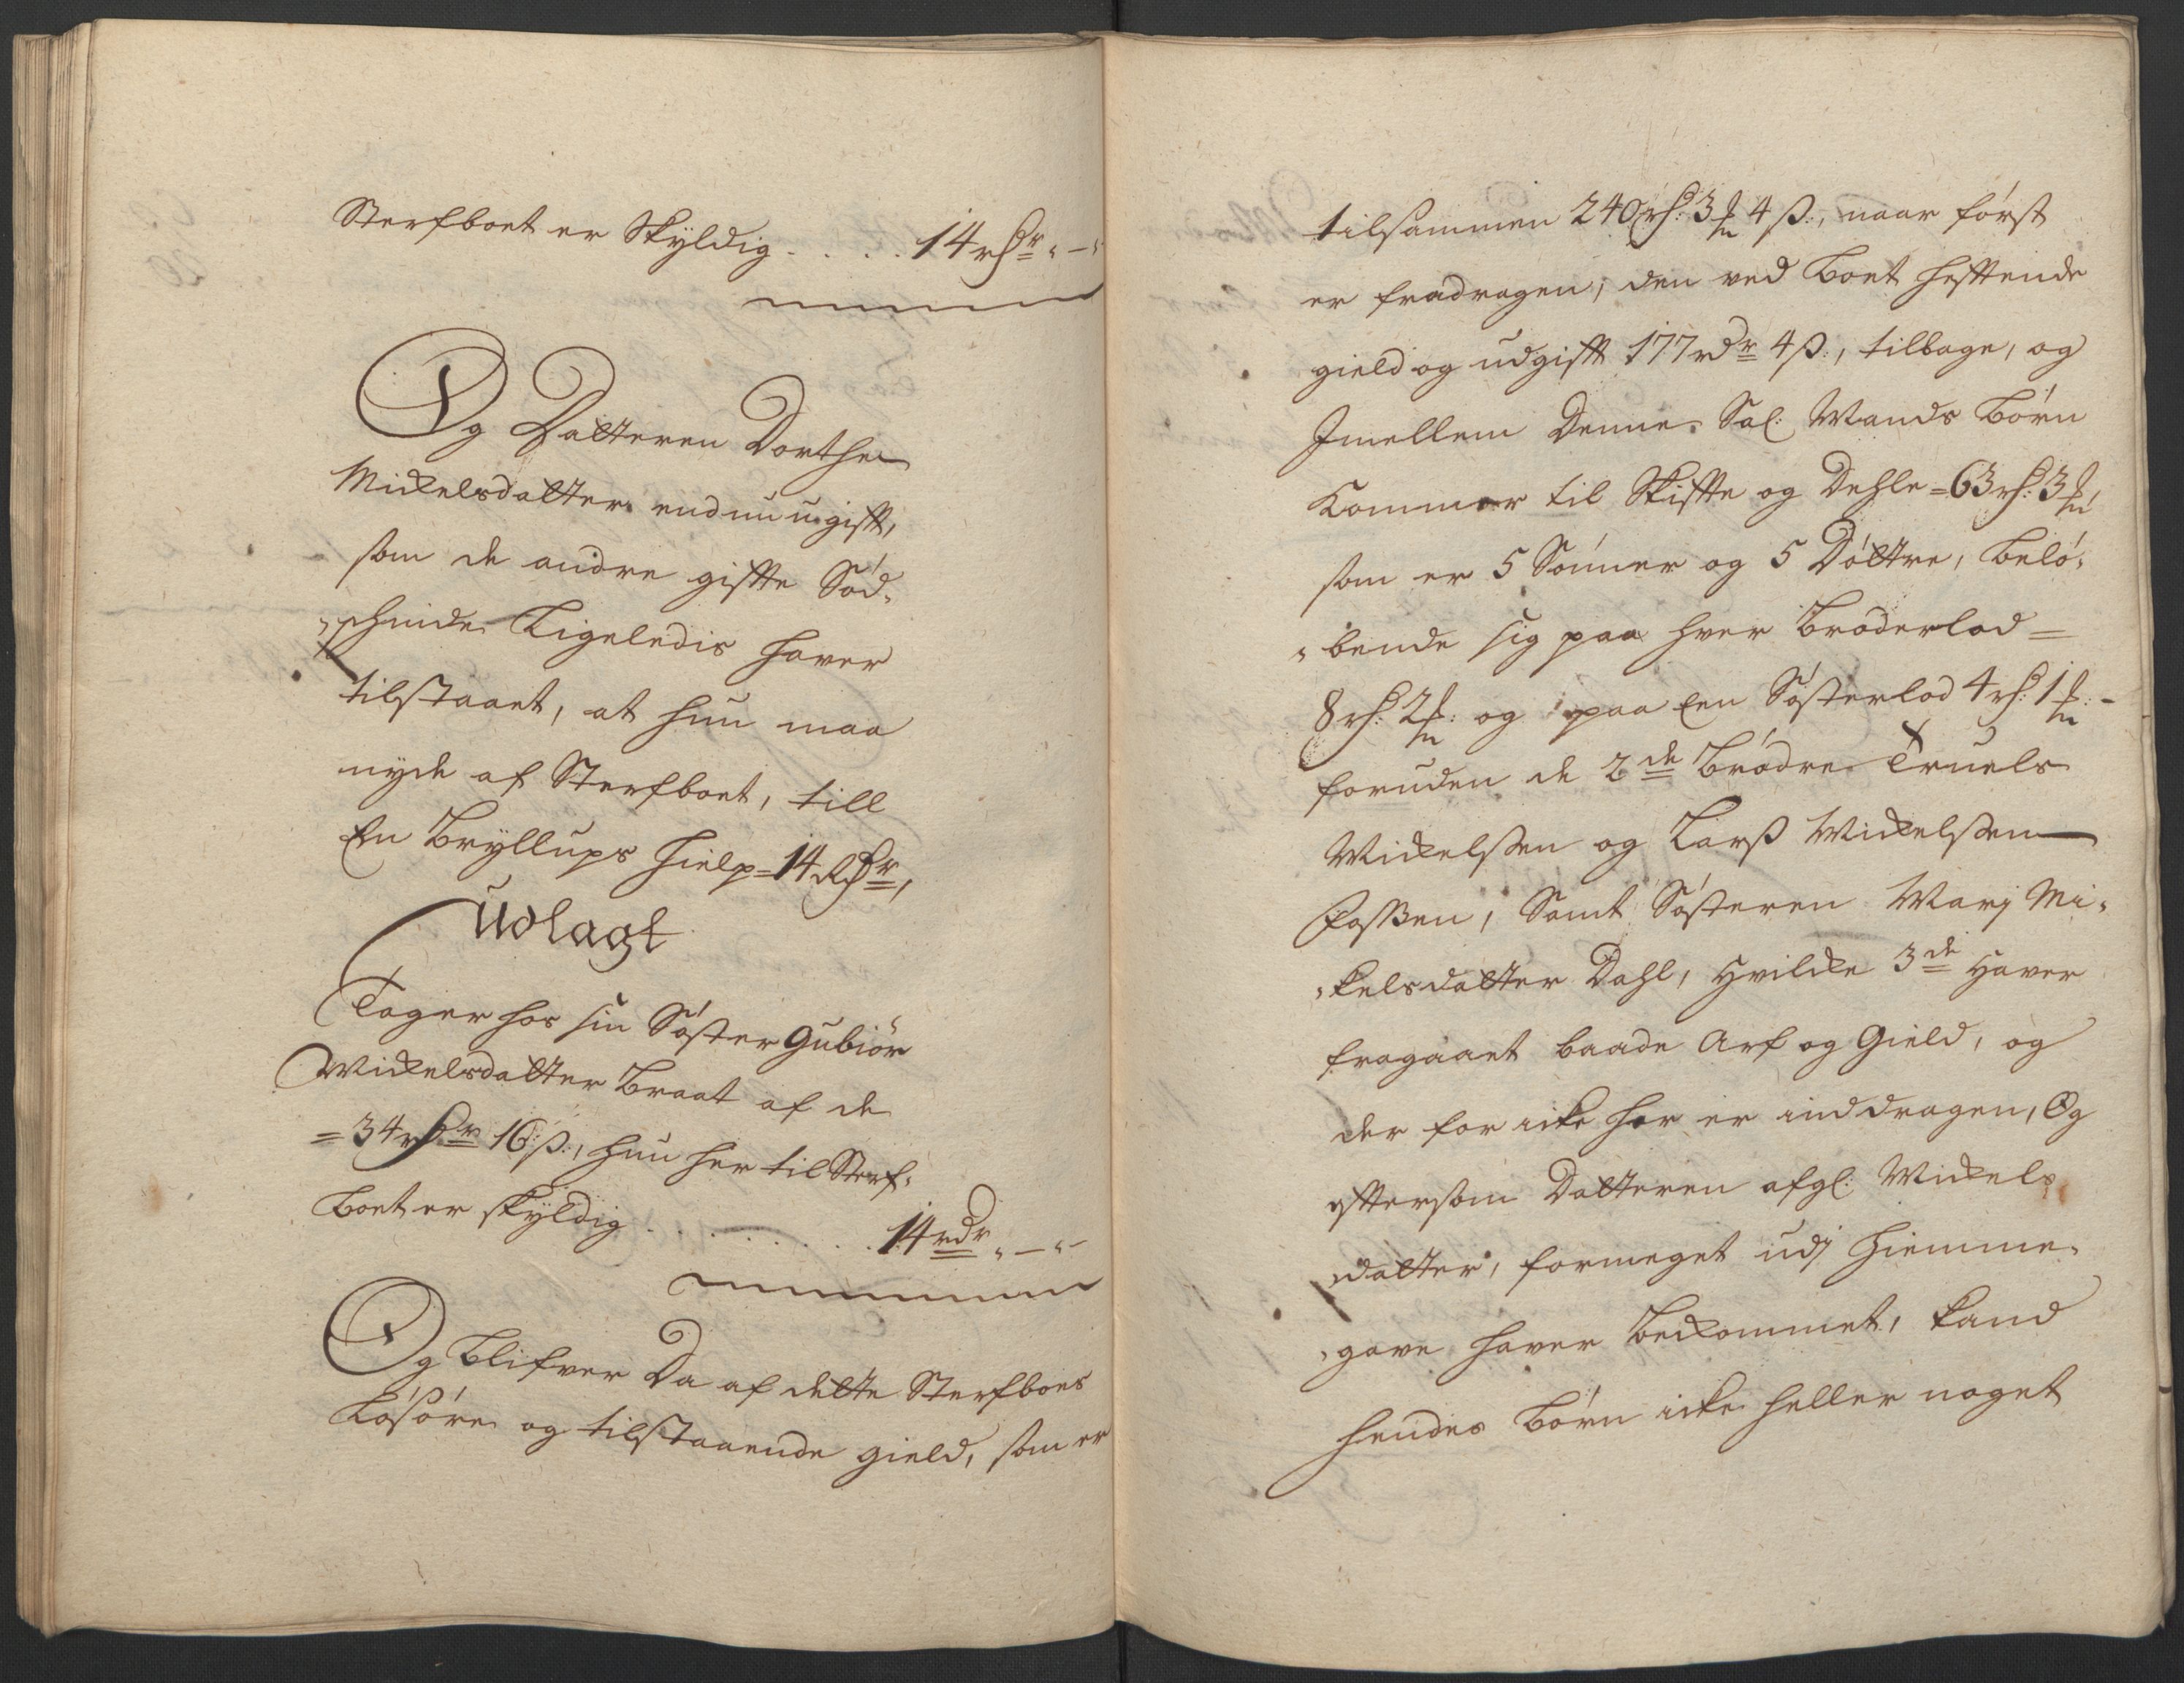 Sterfboet er Skyldig . . . . 14 rdr „ — „
Og Datteren Dorthe
Mickelsdatter endnu ugifft,
som de andre giffte Sød-
„schinde Ligeledis haver
tilstaaet, at hun maa
nyde af Sterfboet, till
En Bryllups hielp = 14 Rdr,
Udlagt
Tager hos sin Søster Gubiør
Mickelsdatter Braat af de
= 34 rdr 16 ß:, hun her til Sterf-
Boet er skyldig . . . . . . . 14 rdr „ — „ —
Og Blifver Da af dette Sterfboes
Løsøre og tilstaaende gield, som er
tilsammen 240 rd: 3 ₰ 4 ß:, naar først
er fradragen, den ved Boet hefftende
gield og udgifft 177 rdr 4 ß:, tilbage, og
Imellem Denne Sal: Mands Børn
Kommer til Skiffte og Dehle = 63 rd: 3 ₰,
som er 5 Sønner og 5 Døttre, belø-
„bende sig paa hver Broderlod =
8 rd: 2 ₰: og paa Een Søsterlod 4 rd: 1 ₰: -
foruden de 2de Brødre Truels
Mickelssen og Larß Mickelssen
Fossen, Samt Søsteren Marj Mi-
„kelsdatter Dahl, hvilcke 3de haver
fragaaet baade Arf og Gield, og
der for icke her er inddragen, Og
efftersom Datteren afgl: Mickels
datter, formeget udj Hiemme-
„gave haver Beckommet, kand
hendes Børn icke heller noget